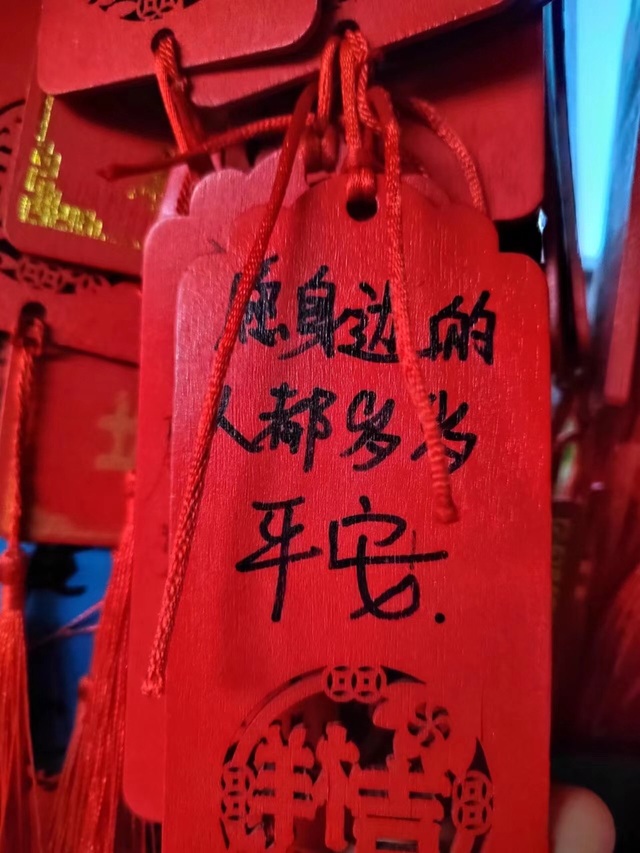 愿身边的
人都岁岁
平安.
吉祥